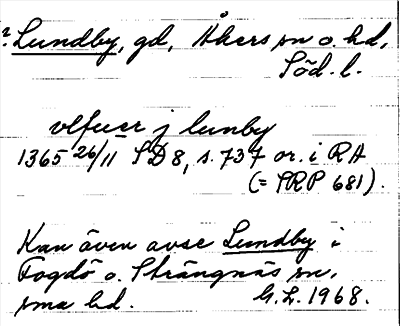 ? Lundby, gd, Åkers sn o. hd,
Söd. l.
vlfuær j lunby
1365 26/11 SD 8, s. 737 or. i RA
(= SRP 681).
Kan även avse Lundby i
Fogdö o. Strängnäs sn,
sma hd. G. L. 1968.